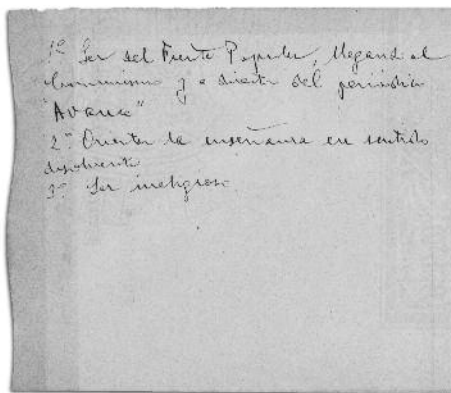 1º Ser del Frente Popular, llegando al
Comunismo y a director del periódico
"Avance"
2º Orientar la enseñanza en sentido
disolvente
3º Ser irreligioso.